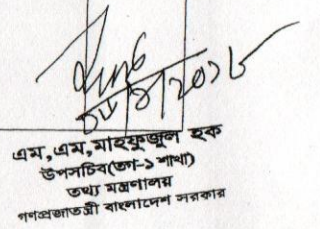 ২০১৮
এম,এম,মাহফুজুল হক
উপসচিব(তগ-১ শাখা)
তথ্য মন্ত্রণালয়
গণপ্রজাতন্ত্রী বাংলাদেশ সরকার